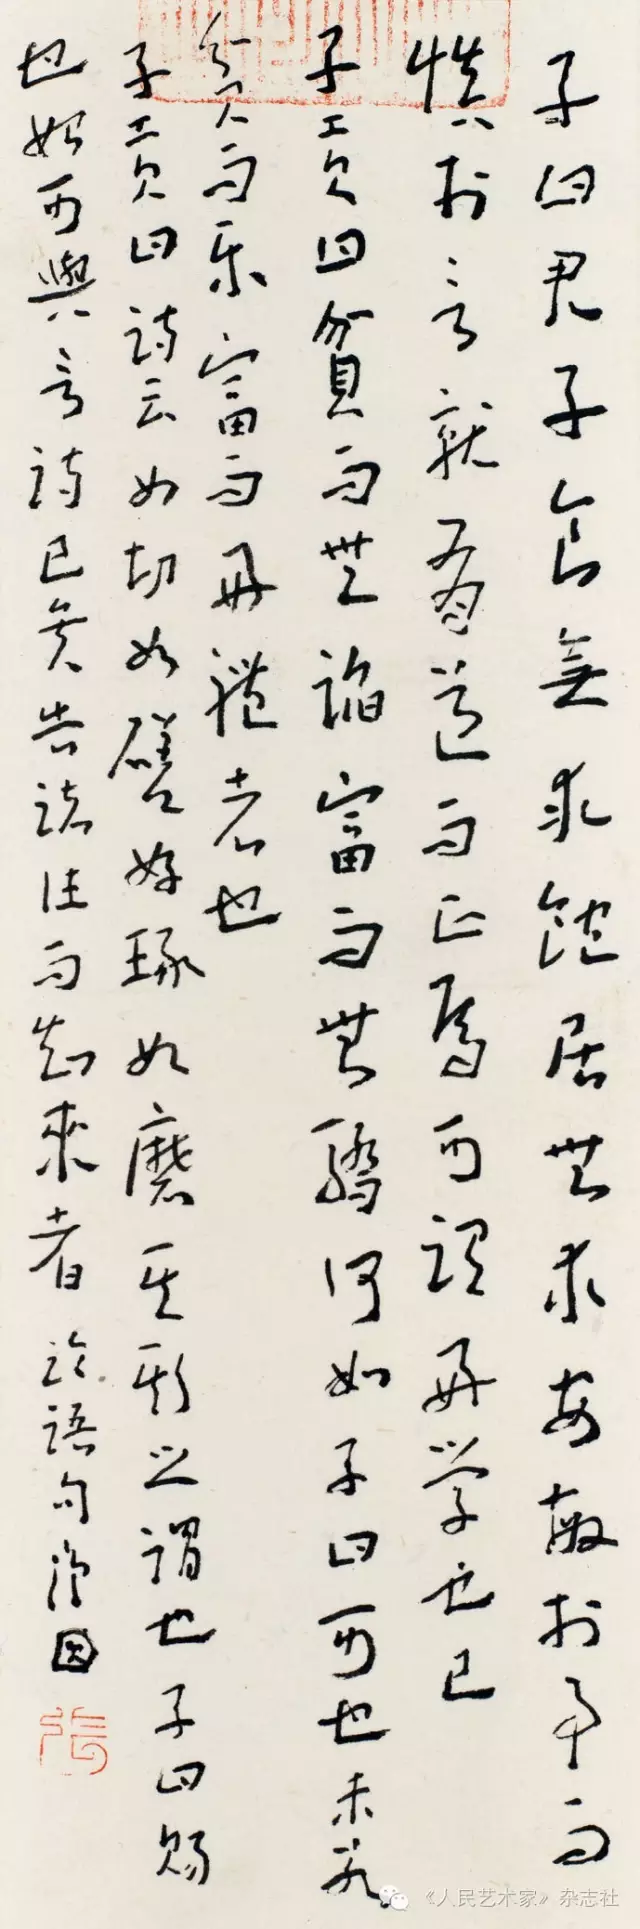 子曰君子食無求飽居無求安敏於事而
慎於言就有道而正焉可謂好学也已
子貢曰貧而無諂富而無驕何如子曰可也未若
貧而樂富而好禮者也
子貢曰詩云如切如磋如琢如磨其斯之謂也子曰賜
也始可與言詩已矣告諸往而知來者 論語句
張
《人民艺术家》杂志社